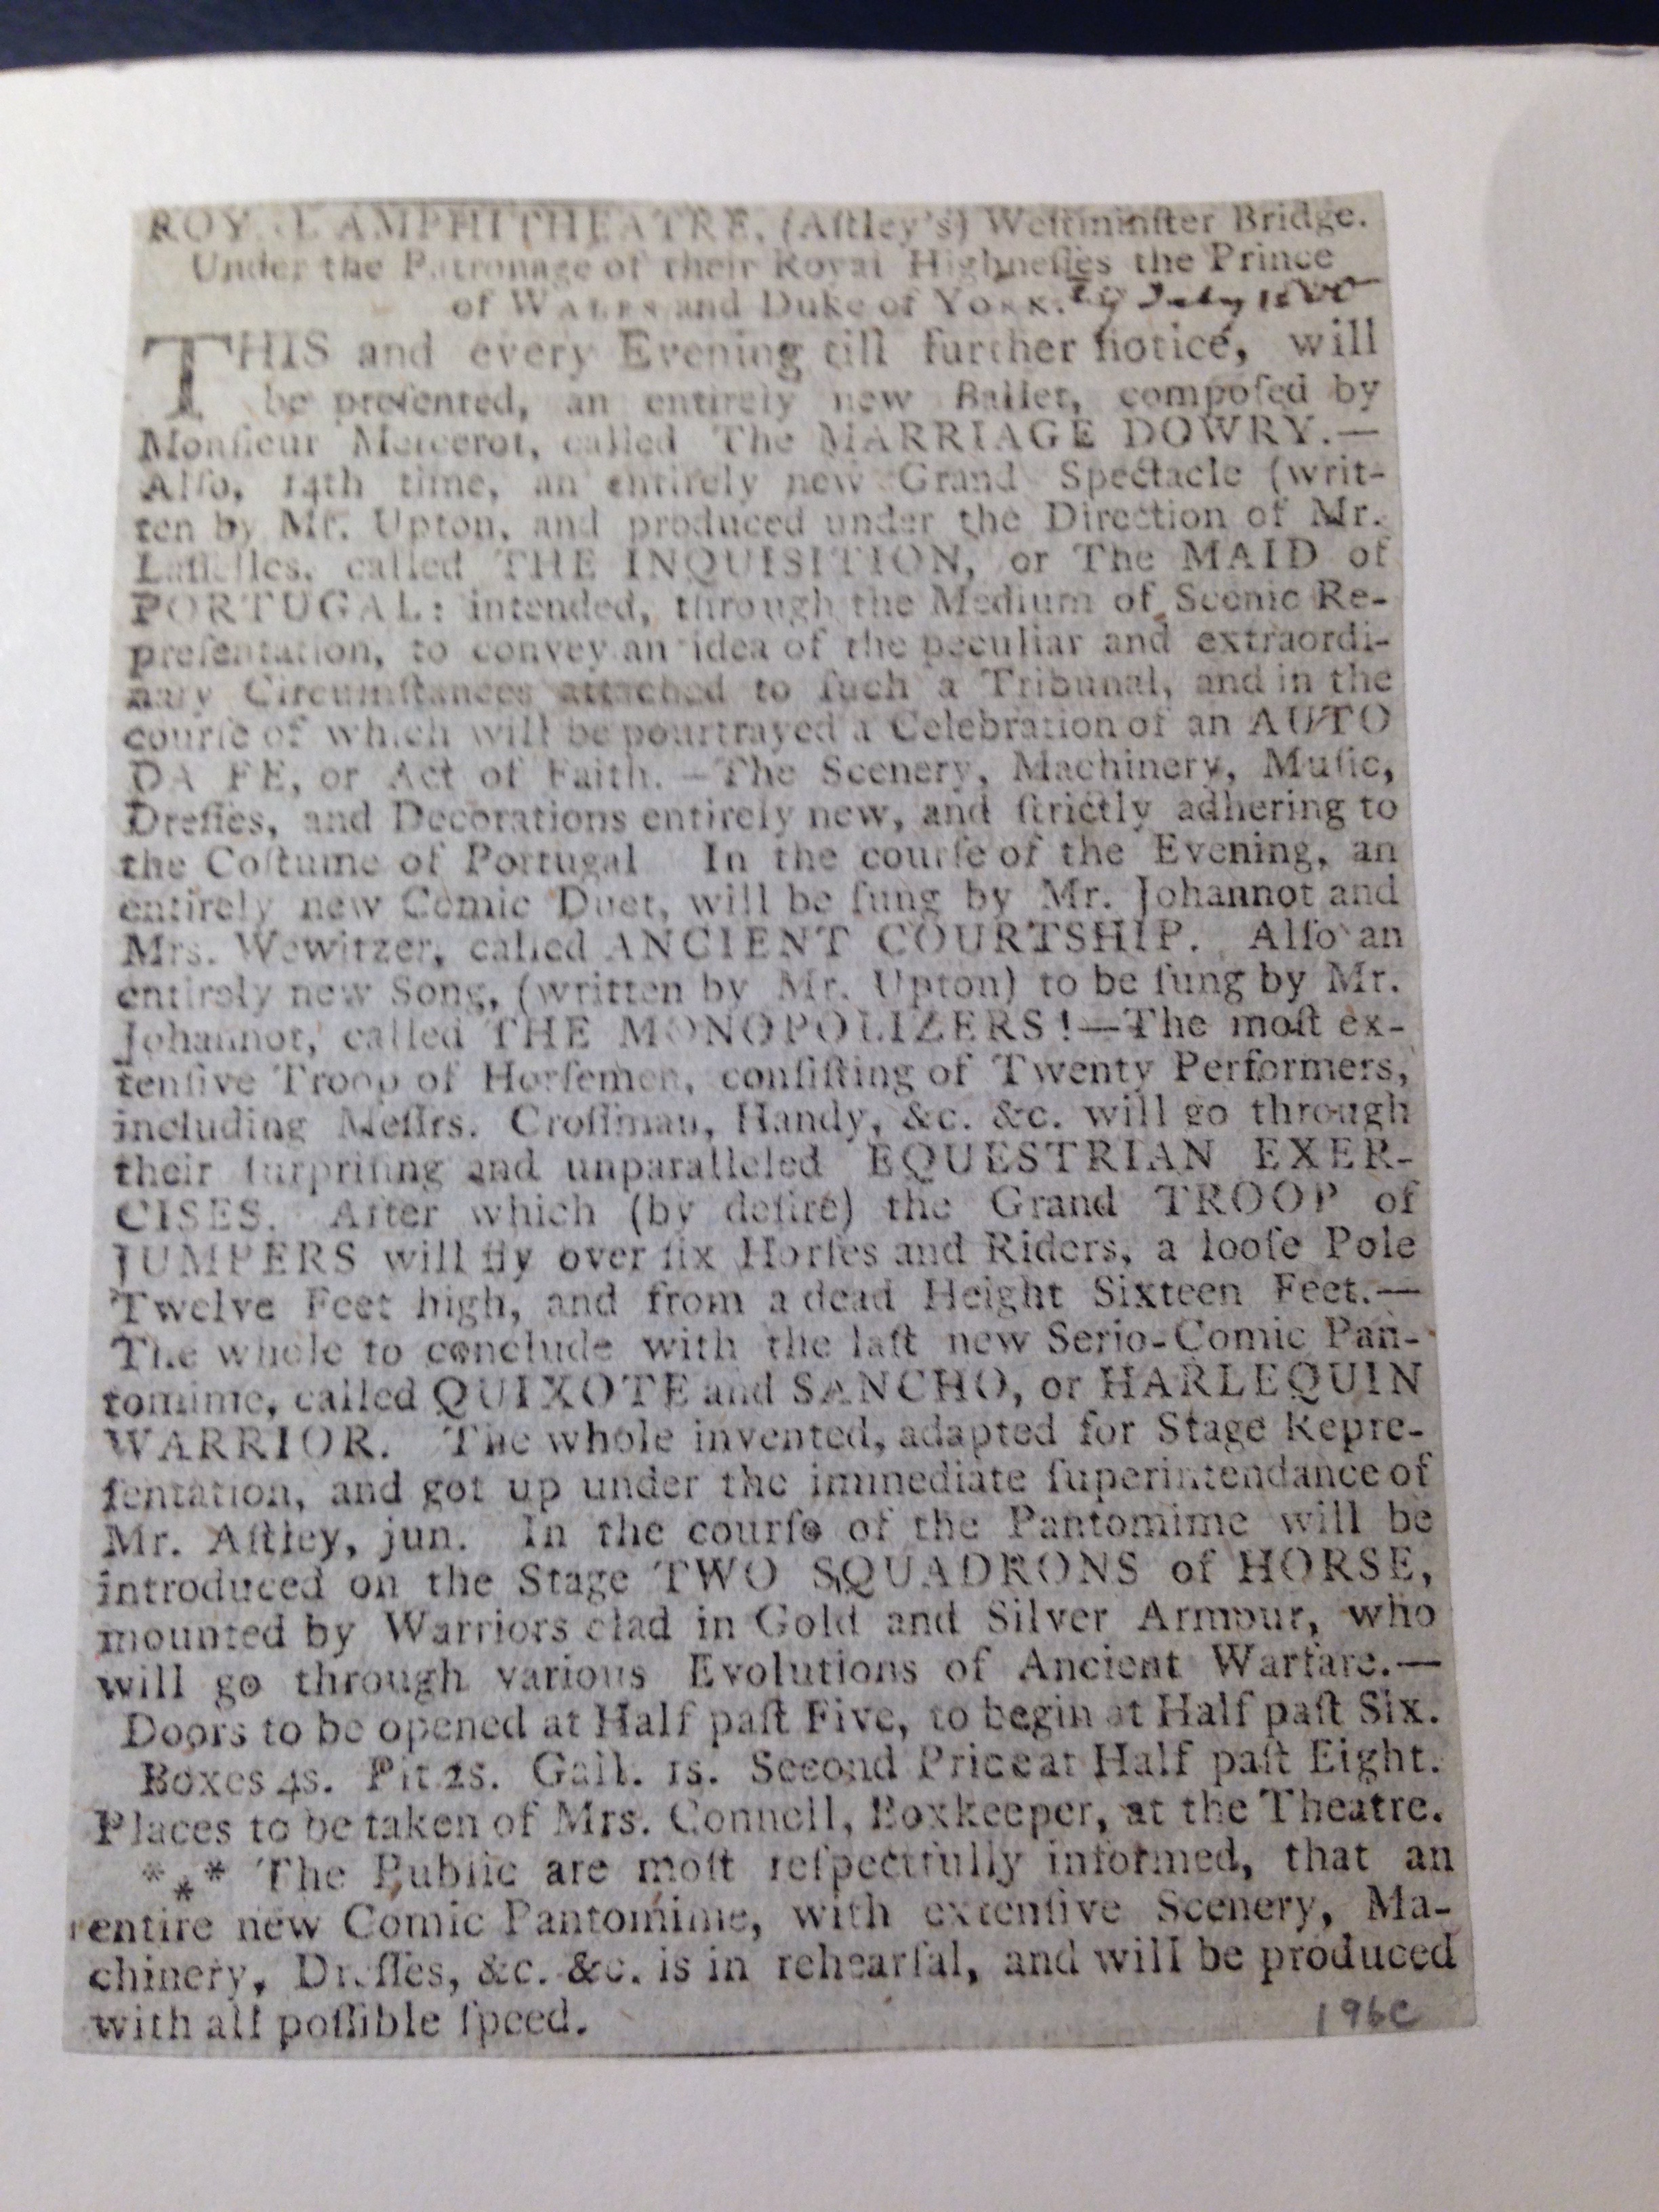 ROYAL AMPHITHEATRE, (Aſtley's) Weſtminſter Bridge.
Under the Patronage of their Royal Highneſſes the Prince
of WALES and Duke of YORK. 29 July 1800
THIS and every Evening till further notice, will
be preſented, an entirely new Ballet, compoſed by
Monſieur Mercerot, called The MARRIAGE DOWRY.—
Alſo, 14th time, an entirely new Grand Spectacle (writ-
ten by Mr. Upton, and produced under the Direction of Mr.
Laſcelles, called THE INQUISITION, or The MAID of
PORTUGAL: intended, through the Medium of Scenic Re-
preſentation, to convey an idea of the peculiar and extraordi-
nary Circumſtances attached to ſuch a Tribunal, and in the
courſe of which will be pourtrayed a Celebration of an AUTO
DA FE, or Act of Faith.—The Scenery, Machinery, Muſic,
Dreſſes, and Decorations entirely new, and ſtrictly adhering to
the Coſtume of Portugal In the courſe of the Evening, an
entirely new Comic Duet, will be ſung by Mr. Johannot and
Mrs. Wewitzer, called ANCIENT COURTSHIP. Alſo an
entirely new Song, (written by Mr. Upton) to be ſung by Mr.
Johannot, called THE MONOPOLIZERS!—The moſt ex-
tenſive Troop of Horſemen, conſiſting of Twenty Performers,
including Meſſrs. Croſſman, Handy, &c. &c. will go through
their ſurpriſing and unparalleled EQUESTRIAN EXER-
CISES. After which (by deſire) the Grand TROOP of
JUMPERS will fly over ſix Horſes and Riders, a looſe Pole
Twelve Feet high, and from a dead Height Sixteen Feet.—
The whole to conclude with the laſt new Serio-Comic Pan-
tomime, called QUIXOTE and SANCHO, or HARLEQUIN
WARRIOR. The whole invented, adapted for Stage Repre-
ſentation, and got up under the immediate ſuperintendance of
Mr. Aſtley, jun. In the courſe of the Pantomime will be
introduced on the Stage TWO SQUADRONS of HORSE,
mounted by Warriors clad in Gold and Silver Armour, who
will go through various Evolutions of Ancient Warfare.—
Doors to be opened at Half paſt Five, to begin at Half paſt Six.
Boxes 4s. Pit 2s. Gall. 1s. Second Price at Half paſt Eight.
Places to be taken of Mrs. Connell, Boxkeeper, at the Theatre.
*** The Public are moſt reſpectfully informed, that an
entire new Comic Pantomime, with extenſive Scenery, Ma-
chinery, Dreſſes, &c. &c. is in rehearſal, and will be produced
with all poſſible ſpeed.
196c